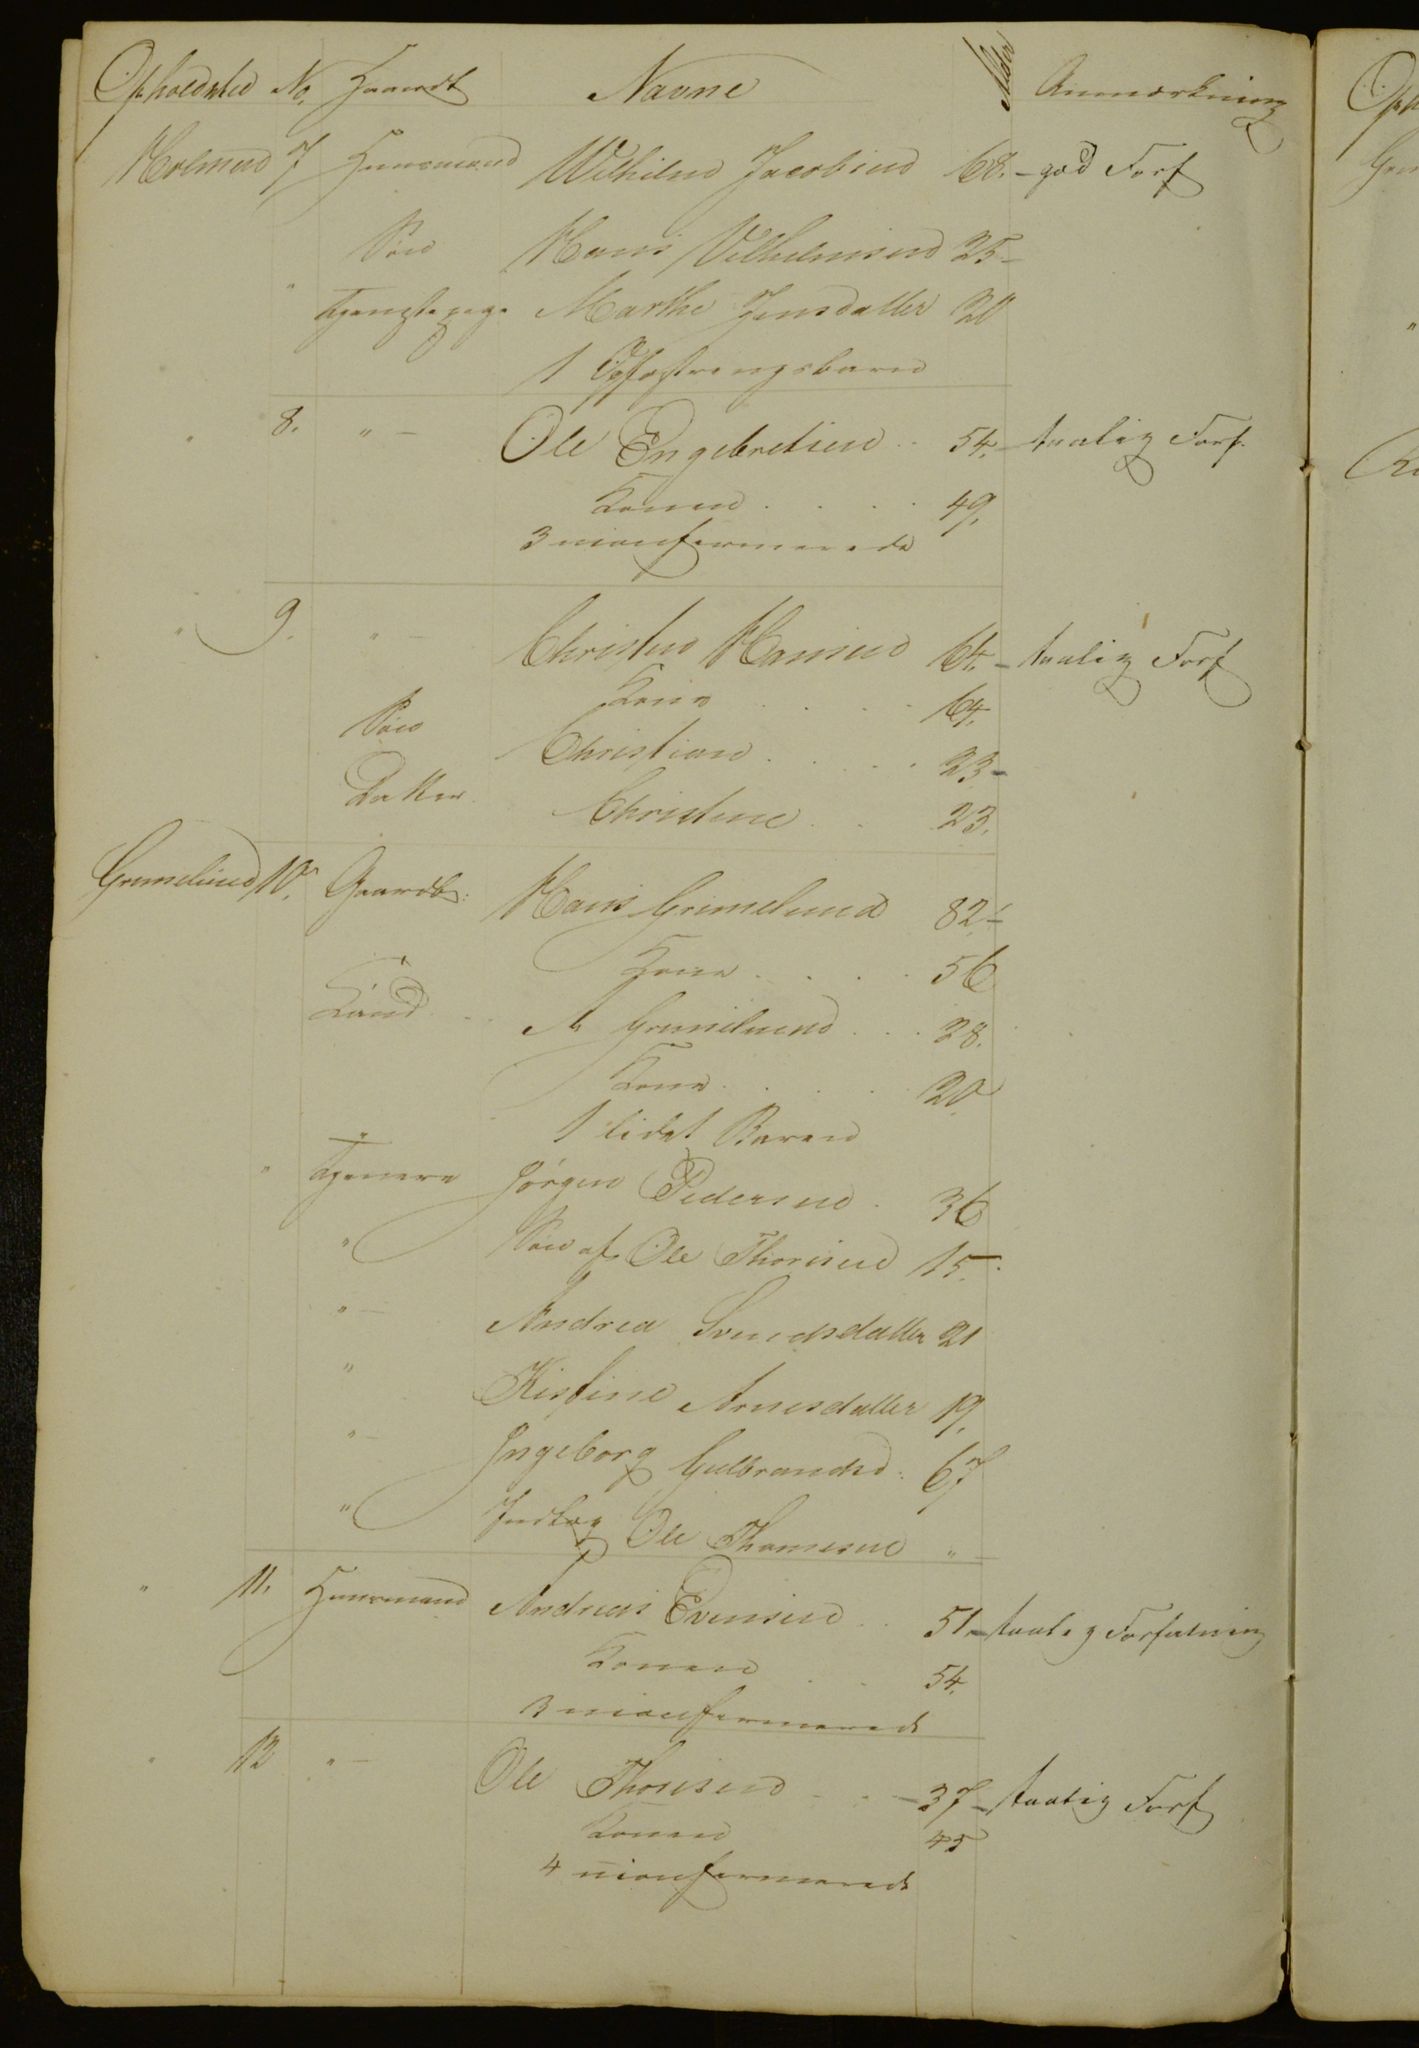 Opholdsted No. Haandt Navne Alder Anmærkning
Holmen 7 Huusmand Wilhelm Jacobsen 68. - god Forf
Søn Hans Vilhelmsen 25 -
" Tjenstepige Marthe Jensdatter 20
1 Opfostringsbarn
" 8. " - Ole Engebretsen . . 54. - taalig Forf.
Konen . . . . 49.
3 uconfirmerede
" 9. " - Christen Hansen 64. - taalig Forf
Kone . . . . 64.
Søn Christian . . . . . 23 -
Datter Christine . . 23.
Grimelund 10. Gaardb: Hans Grimelund 82 -
Kone . . . . 56
A Grimelund . . . 28.
Kone . . . . 20
1 lidet Barn
" Tjenere Jørgen Pedersen . 36
" Søn af Ole Thorsen 15.
" - Andrea Svendsdatter 21
" Kistine Arnesdatter 19.
" - Ingeborg Gulbrandsd: 67
" Indlag Ole Thomesen "
" 11. Huusmand Andreas Evensen . . 51. - taalig Forfatning
Konen . . 54.
3 uconfirmerede
" 12 " - Ole Thorsen . . - 37 - taalig Forf
Konen 45
4 uconfirmerede
Oph